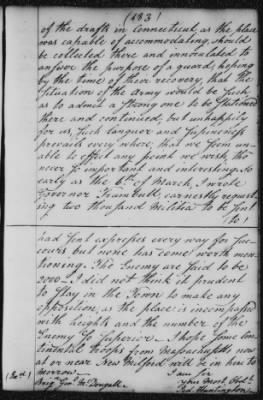 (183)
of the drafts in Connecticut, as the place
was capable of accommodating, should
be collected there and innoculated to
answer the purpose of a guard, hoping
by the time of their recovery, that the
situation of the Army would be such,
as to admit a strong one to be stationed
there and continued; but unhappily
for us, such languor and supineness
prevails every where, that we seem un-
able to effect any point we wish, tho'
never so important and interesting. So
early as the 6th. of March, I wrote
Governor Trumbull, earnestly request-
ing two thousand Militia to be sent
(No.)
had sent expresses every way for suc-
cours but none has come worth men-
tioning. The Enemy are said to be
2000 — I did not think it prudent
to stay in the Town to make any
opposition, as the place is incompassed
with heights and the number of the
Enemy so superior. I hope some Con-
tinental Troops from Massachusetts now
at or near New Milford will be in here to
morrow. — I am Sir
(No. 1.) your most Obdt.
Brig. Genl. McDougall. Jed. Huntington